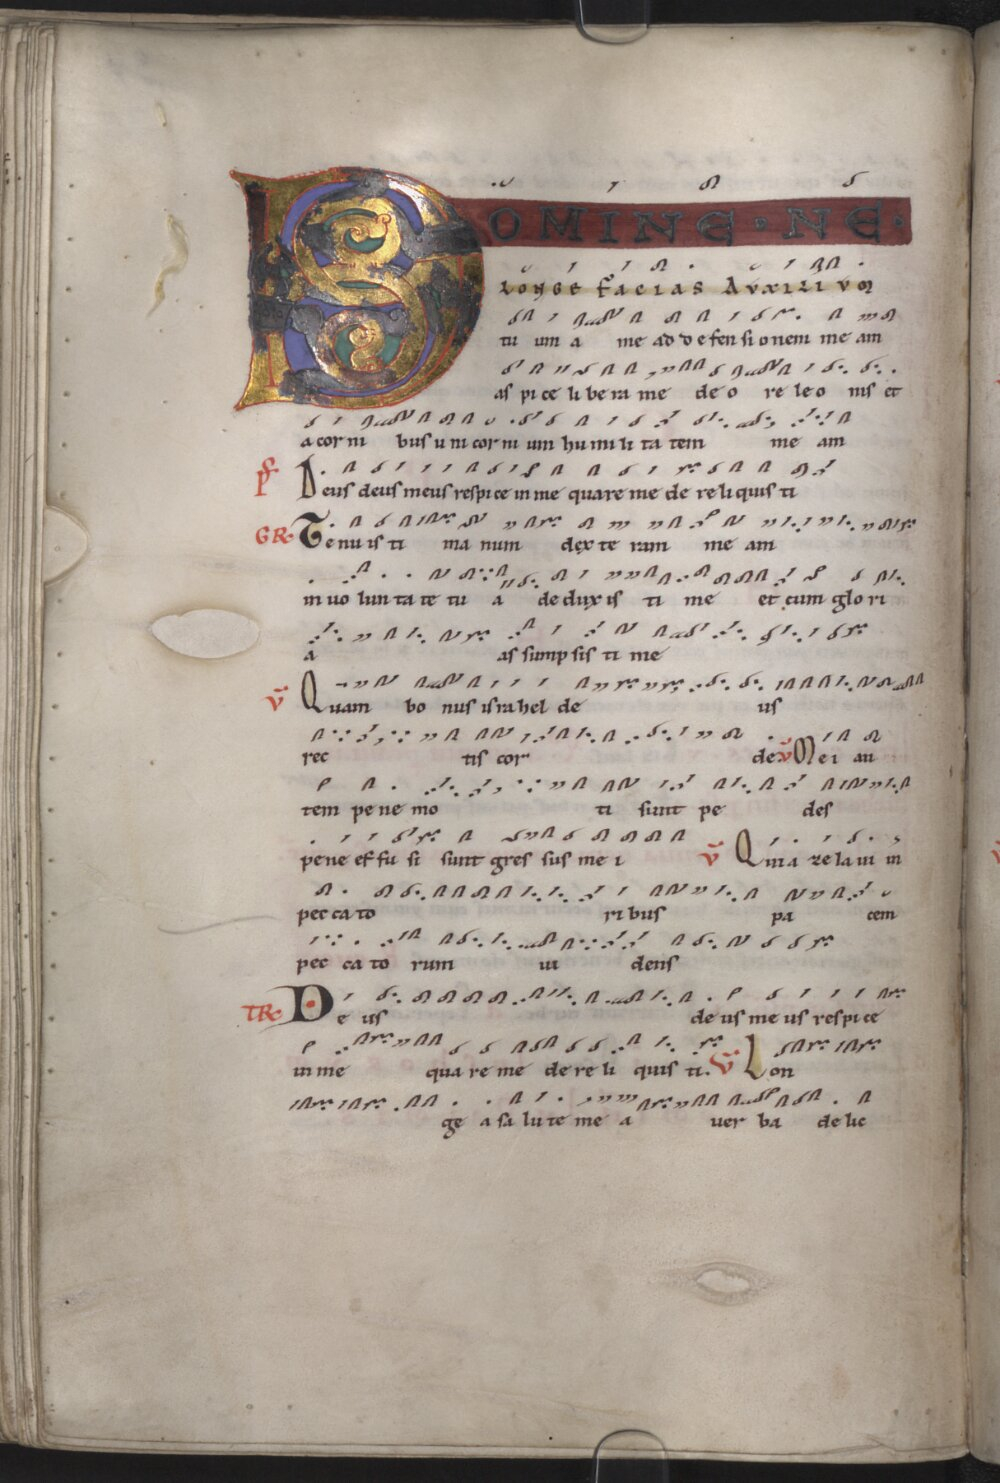 DOMINE · NE ·
longe facias Auxilium
tu um a me ad defen si onem me am
as pi ce li be ra me de o re le o nis et
a cor ni bus u ni cor ni um hu mi li ta tem me am
ps Deus deus meus respice in me quare me de re li quis ti
GR Te nu is ti ma num dex te ram me am
in uo lun ta te tu a de dux is ti me et cum glo ri
a as sump sis ti me
V Quam bo nus isra hel de us
rec tis cor de V Mei au
tem pe ne mo ti sunt pe des
pene ef fu si sunt gres sus me i V Quia ze la ui in
pec ca to ri bus pa cem
pec ca to rum ui dens
TR De us de us me us respi ce
in me qua re me de re li quis ti. V Lon
ge a sa lu te me a uer ba de lic